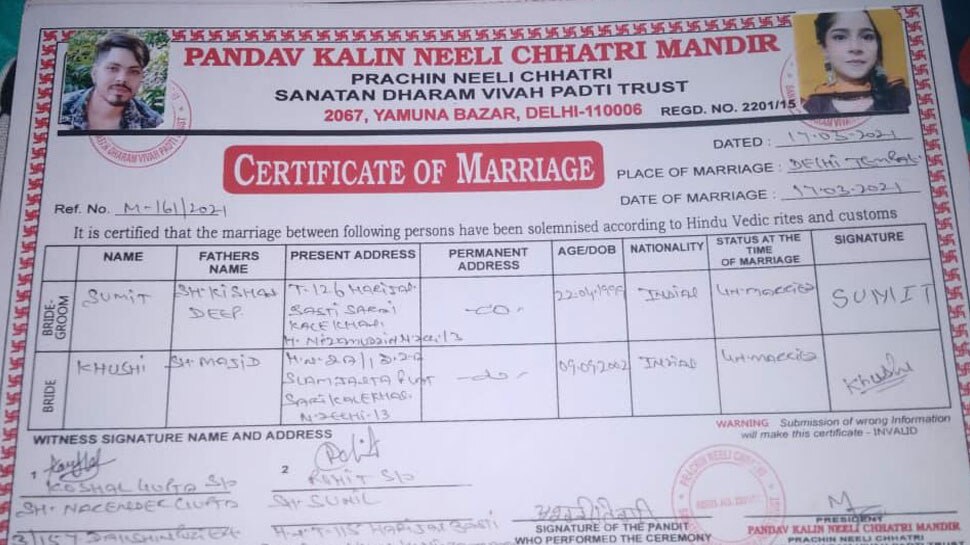 PANDAV KALIN NEELI CHHATRI MANDIR
PRACHIN NEELI CHHATRI
SANATAN DHARAM VIVAH PADTI TRUST
2067, YAMUNA BAZAR, DELHI-110006 REGD. NO. 2201/15
DATED : 17-03-2021
CERTIFICATE OF MARRIAGE
PLACE OF MARRIAGE : DELHI
DATE OF MARRIAGE : 17-03-2021
Ref. No. M-161/2021
It is certified that the marriage between following persons have been solemnised according to Hindu Vedic rites and customs
NAME FATHERS NAME PRESENT ADDRESS PERMANENT ADDRESS AGE/DOB NATIONALITY STATUS AT THE TIME OF MARRIAGE SIGNATURE
BRIDE-GROOM
SUMIT
SH. KISHAN
DEEP
T-126
H. Nizamuddin
INDIAN
Un-married
SUMIT
BRIDE
KHUSHI
SH MAJID
09.09.2002
INDIAN
Un-married
Khushi
WARNING Submission of wrong Information
will make this certificate - INVALID
WITNESS SIGNATURE NAME AND ADDRESS
1
2
KOSHAL GUPTA S/o
ROHIT S/o
SH. SUNIL
PRACHIN NEELI CHHATRI
SIGNATURE OF THE PANDIT
WHO PERFORMED THE CEREMONY
PRESIDENT
PANDAV KALIN NEELI CHHATRI MANDIR
PRACHIN NEELI CHHATRI